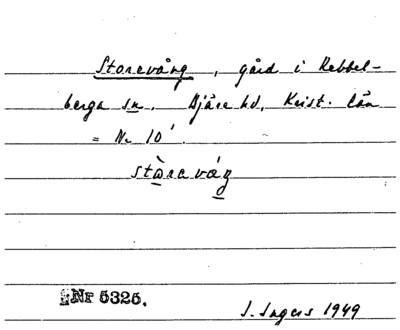 Storevång, gård i Rebbel-
berga sn. Bjäre hd, Krist. län
= Nr 10¹.
stòrevág
Nr 5325.
I. Ingers 1949